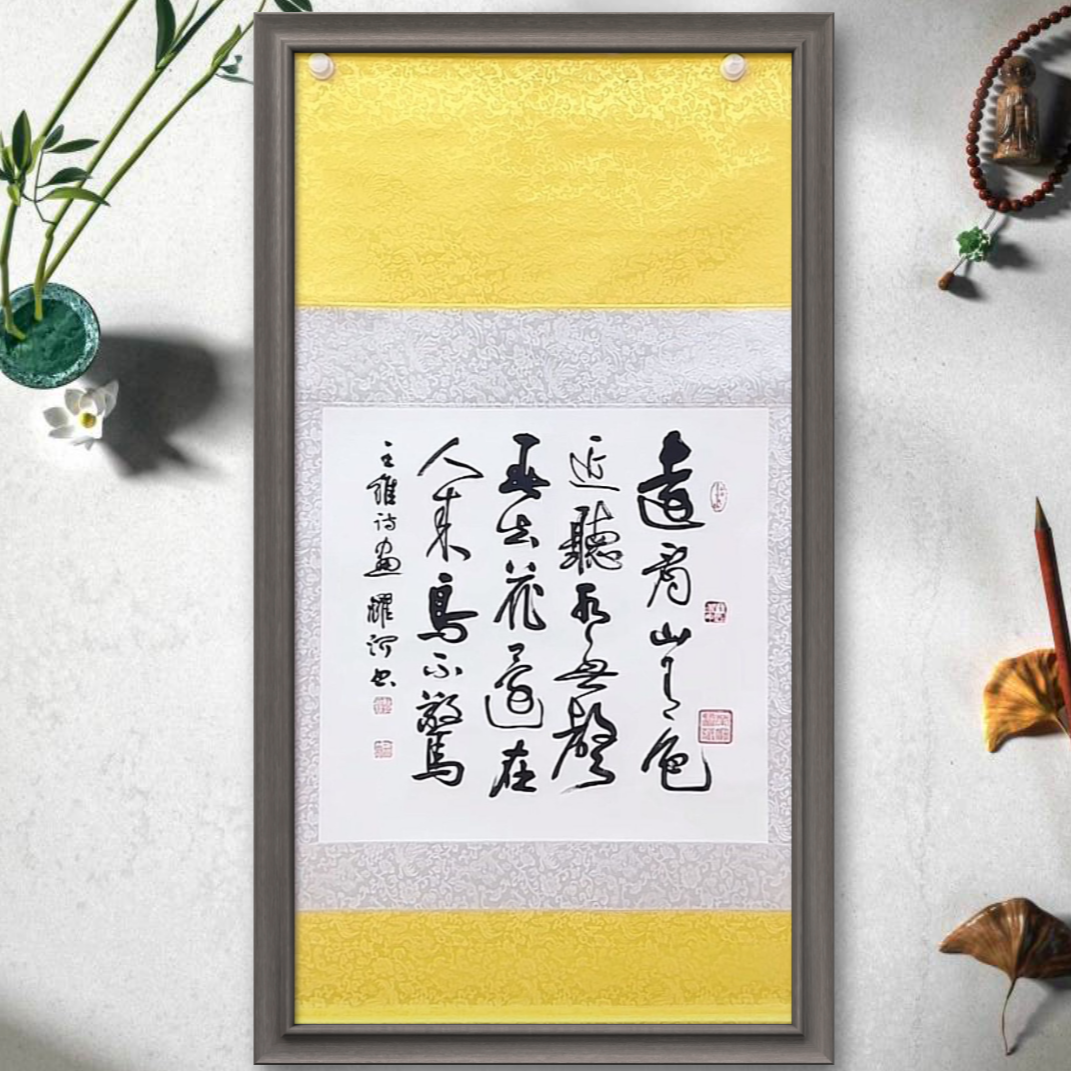 遠看山有色
近聽水無聲
春去花還在
人来鳥不驚
王維诗畫 耀 书